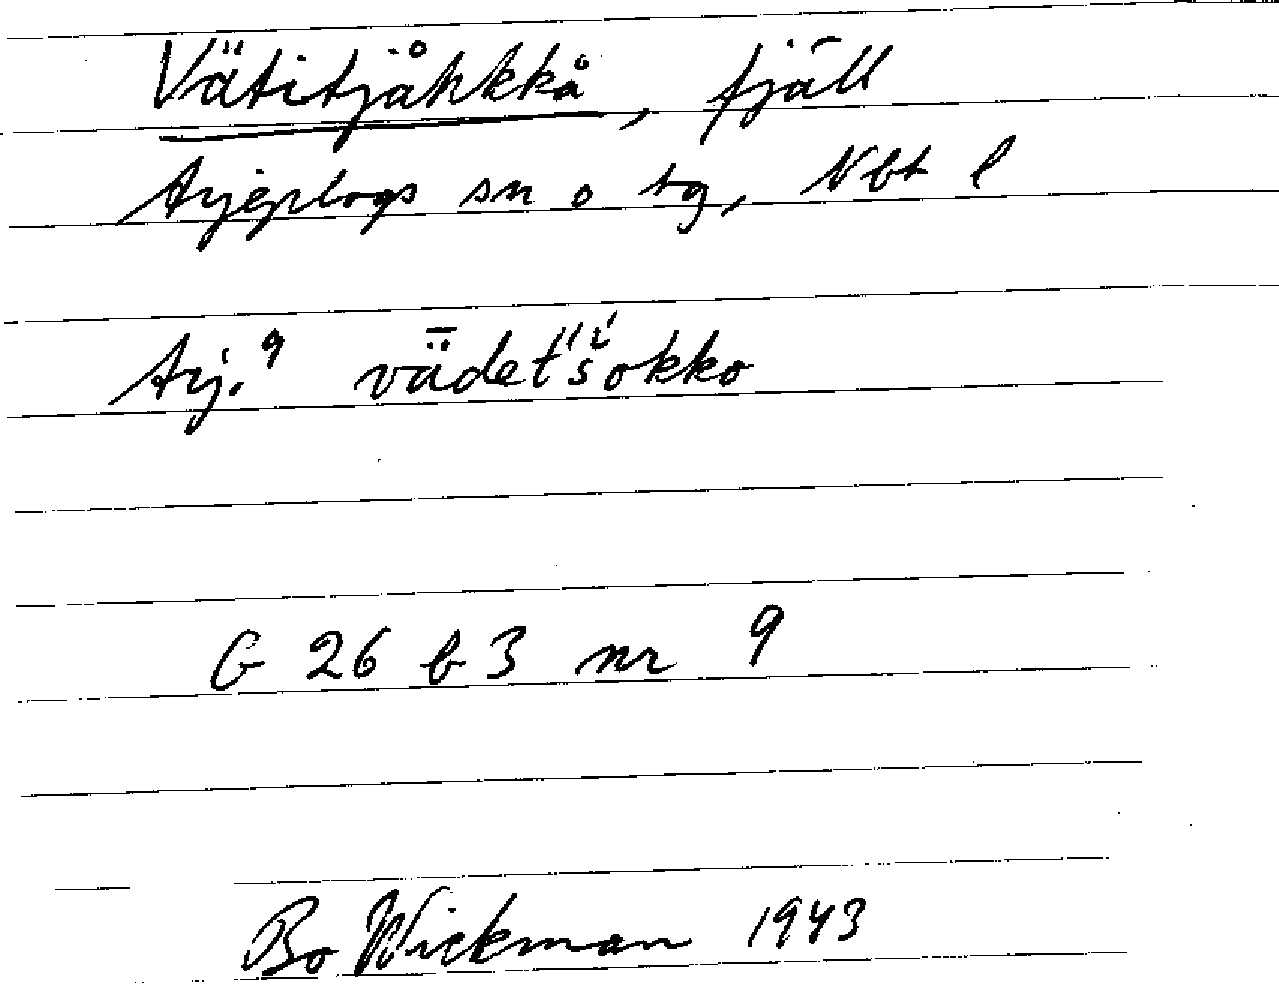 Vätitjåhkkå, fjäll
Arjeplogs sn o tg, Nbt l
Arj. 9 vǟdet´´š́okko
G 26 b 3 nr 9
Bo Wickman 1943